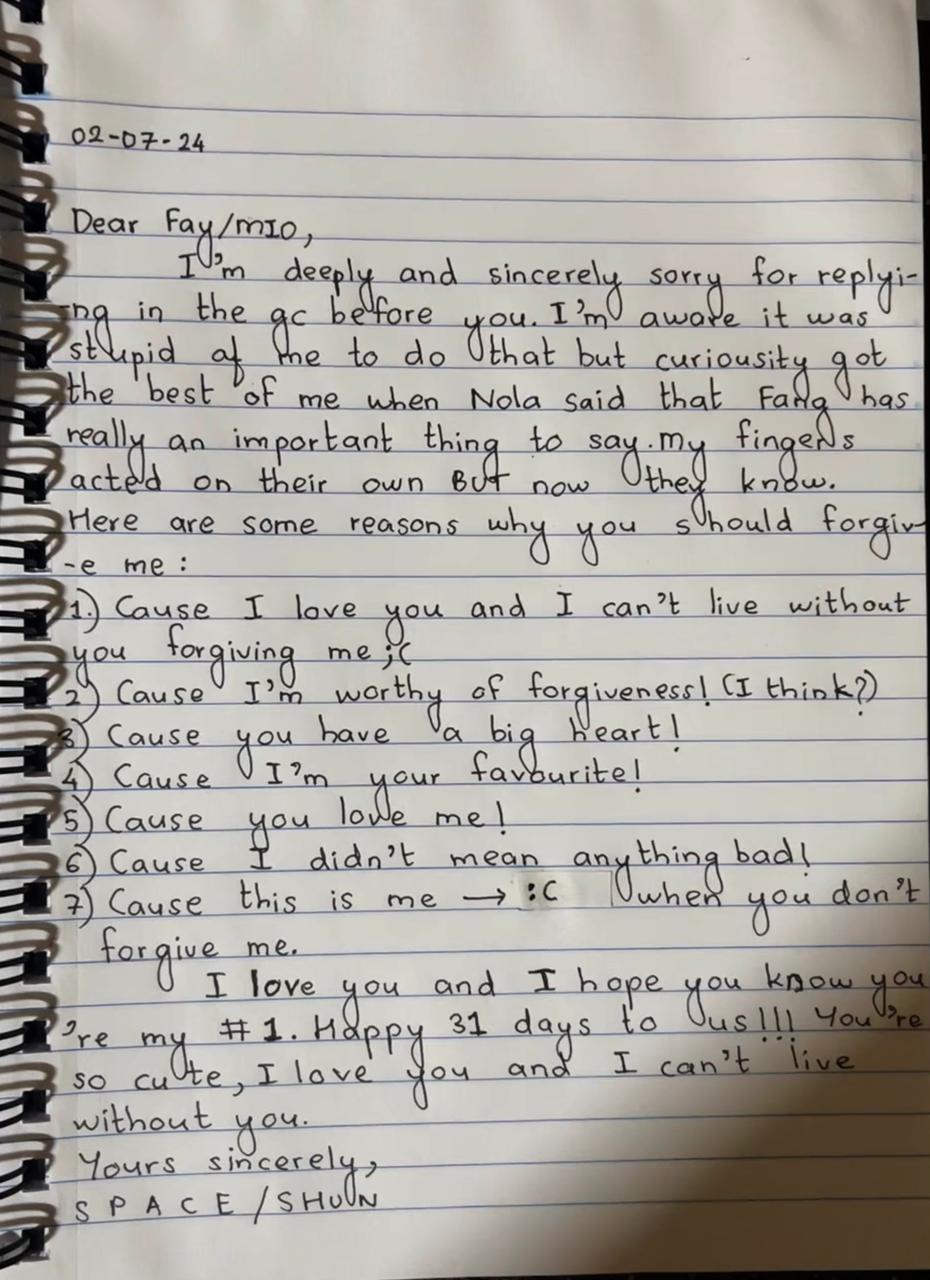 02-07-24
Dear Fay/MIO,
I'm deeply and sincerely sorry for replyi-
-ng in the gc before you. I'm aware it was
stupid of me to do that but curiousity got
the best of me when Nola said that Fang has
really an important thing to say. my fingers
acted on their own But now they know.
Here are some reasons why you should forgiv-
-e me :
1.) Cause I love you and I can't live without
you forgiving me ;C
2) Cause I'm worthy of forgiveness! (I think?)
3) Cause you have a big heart!
4) Cause I'm your favourite!
5) Cause you love me!
6) Cause I didn't mean anything bad!
7) Cause this is me → :C when you don't
forgive me.
I love you and I hope you know you
're my #1. Happy 31 days to us!!! You're
so cute, I love you and I can't live
without you.
Yours sincerely,
S P A C E / SHUN